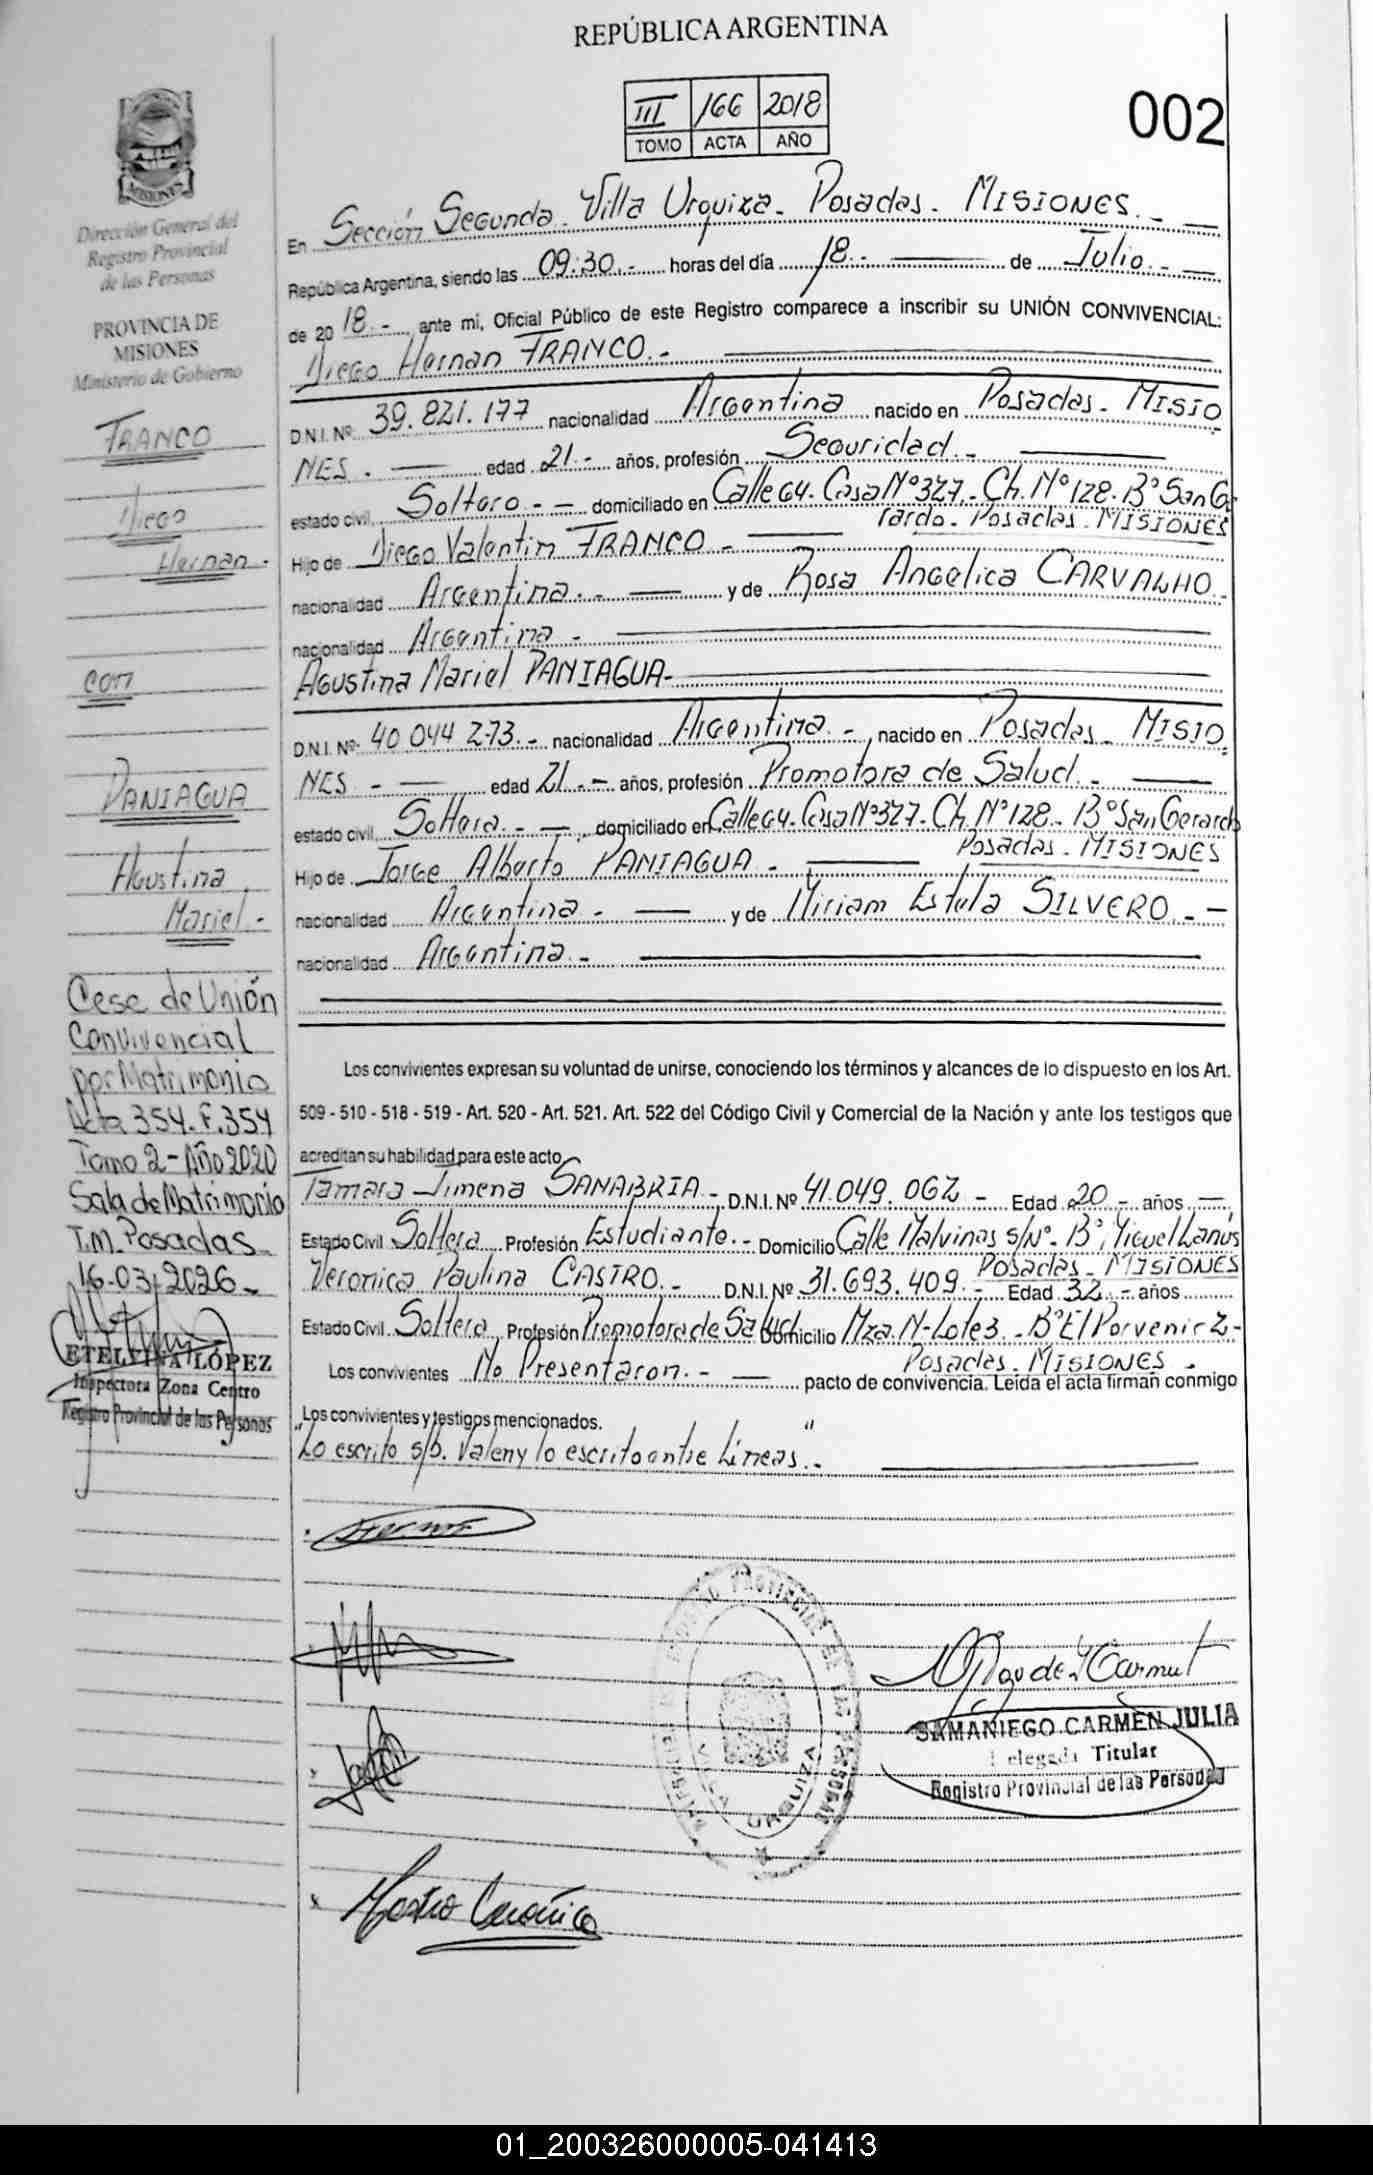 REPÚBLICA ARGENTINA
III 166 2018
TOMO ACTA AÑO
002
MISIONES
Dirección General del
Registro Provincial
de las Personas
PROVINCIA DE
MISIONES
Ministerio de Gobierno
FRANCO
Diego
Hernan.
con
PANIAGUA
Agustina
Mariel.-
Cese de Unión
Convivencial
por Matrimonio
Acta 354. F.354
Tomo 2 - Año 2020
Sala de Matrimonio
T.M. Posadas
16-03-2026-
ETELVINA LÓPEZ
Inspectora Zona Centro
Registro Provincial de las Personas
En Sección Segunda. Villa Urquiza. Posadas. MISIONES.-
República Argentina, siendo las 09:30.- horas del día 18.- de Julio.-
de 2018.- ante mi, Oficial Público de este Registro comparece a inscribir su UNIÓN CONVIVENCIAL:
Diego Hernan FRANCO.-
D.N.I. Nº 39.821.177 nacionalidad Argentina nacido en Posadas. MISIO
NES.- edad 21.- años, profesión Seguridad.-
estado civil Soltero.- domiciliado en Calle 64. Casa Nº 327. Ch. Nº 128. Bº San Ge
rardo. Posadas. MISIONES
Hijo de Diego Valentin FRANCO.-
nacionalidad Argentina.- y de Rosa Angelica CARVALHO.
nacionalidad Argentina.-
Agustina Mariel PANIAGUA-
D.N.I. Nº 40.044.273.- nacionalidad Argentina.- nacido en Posadas. MISIO
NES.- edad 21.- años, profesión Promotora de Salud.-
estado civil Soltera.- domiciliado en Calle 64. Casa Nº 327. Ch. Nº 128. Bº San Gerardo
Posadas. MISIONES
Hijo de Jorge Alberto PANIAGUA.-
nacionalidad Argentina.- y de Miriam Estela SILVERO.-
nacionalidad Argentina.-
Los convivientes expresan su voluntad de unirse, conociendo los términos y alcances de lo dispuesto en los Art.
509 - 510 - 518 - 519 - Art. 520 - Art. 521. Art. 522 del Código Civil y Comercial de la Nación y ante los testigos que
acreditan su habilidad para este acto
Tamara Jimena SANABRIA.- D.N.I. Nº 41.049.062 - Edad 20.- años
Estado Civil Soltera Profesión Estudiante.- Domicilio Calle Malvinas s/Nº. Bº Miguel Lanús
Posadas. MISIONES
Veronica Paulina CASTRO.- D.N.I. Nº 31.693.409.- Edad 32.- años
Estado Civil Soltera Profesión Promotora de Salud Domicilio Mza. N-Lote 3. Bº El Porvenir 2-
Posadas. MISIONES.
Los convivientes No Presentaron.- pacto de convivencia. Leída el acta firman conmigo
Los convivientes y testigos mencionados.
"Lo escrito s/b. Valen y lo escrito entre Líneas".-
REGISTRO PROVINCIAL DE LAS PERSONAS
VILLA URQUIZA
SAMANIEGO CARMEN JULIA
Delegada Titular
Registro Provincial de las Personas
Castro Verónica
01_200326000005-041413